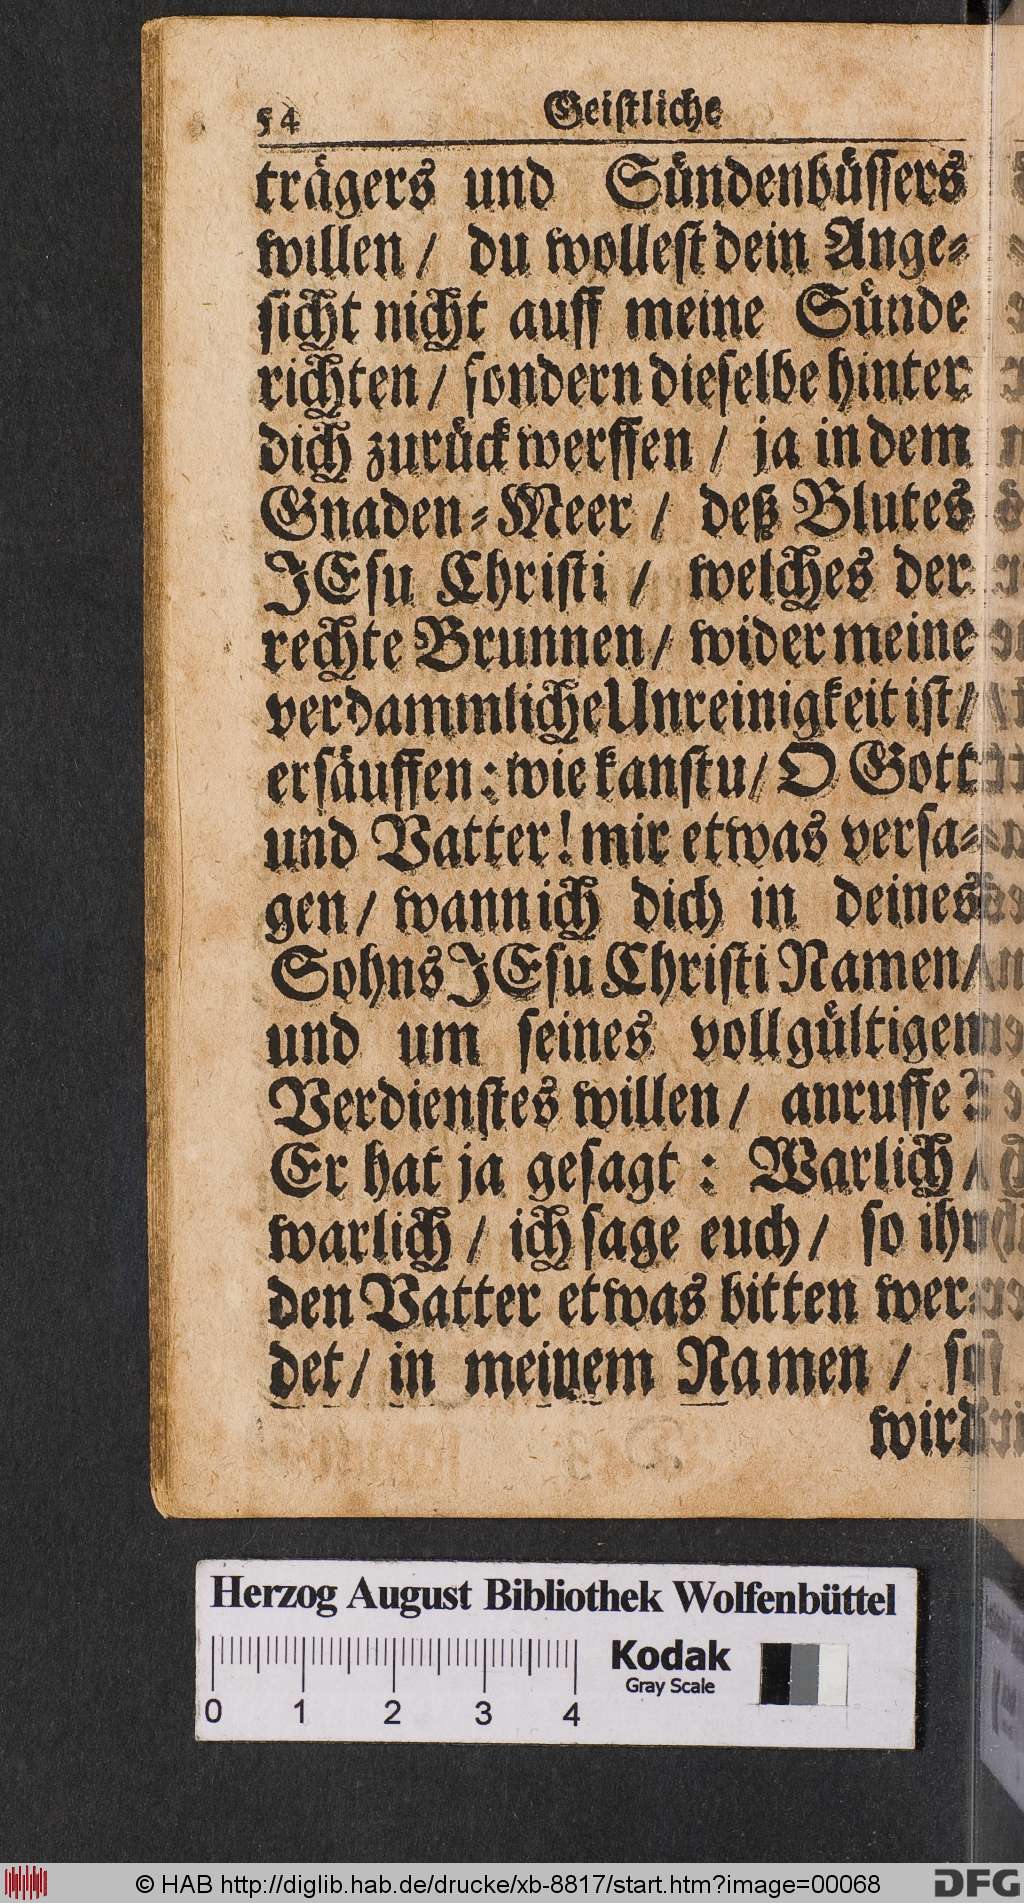 54 Geistliche
trägers und Sündenbüssers
willen / du wollest dein Ange-
sicht nicht auff meine Sünde
richten / sondern dieselbe hinter
dich zurück werffen / ja in dem
Gnaden-Meer / deß Blutes
JEsu Christi / welches der
rechte Brunnen / wider meine
verdammliche Unreinigkeit ist /
ersäuffen: wie kanstu / O Gott
und Vatter! mir etwas versa-
gen / wann ich dich in deines
Sohns JEsu Christi Namen /
und um seines vollgültigen
Verdienstes willen / anruffe?
Er hat ja gesagt: Warlich /
warlich / ich sage euch / so ihr
den Vatter etwas bitten wer-
det / in meinem Namen / so
wird
Herzog August Bibliothek Wolfenbüttel
Kodak
Gray Scale
0 1 2 3 4
© HAB http://diglib.hab.de/drucke/xb-8817/start.htm?image=00068
DFG